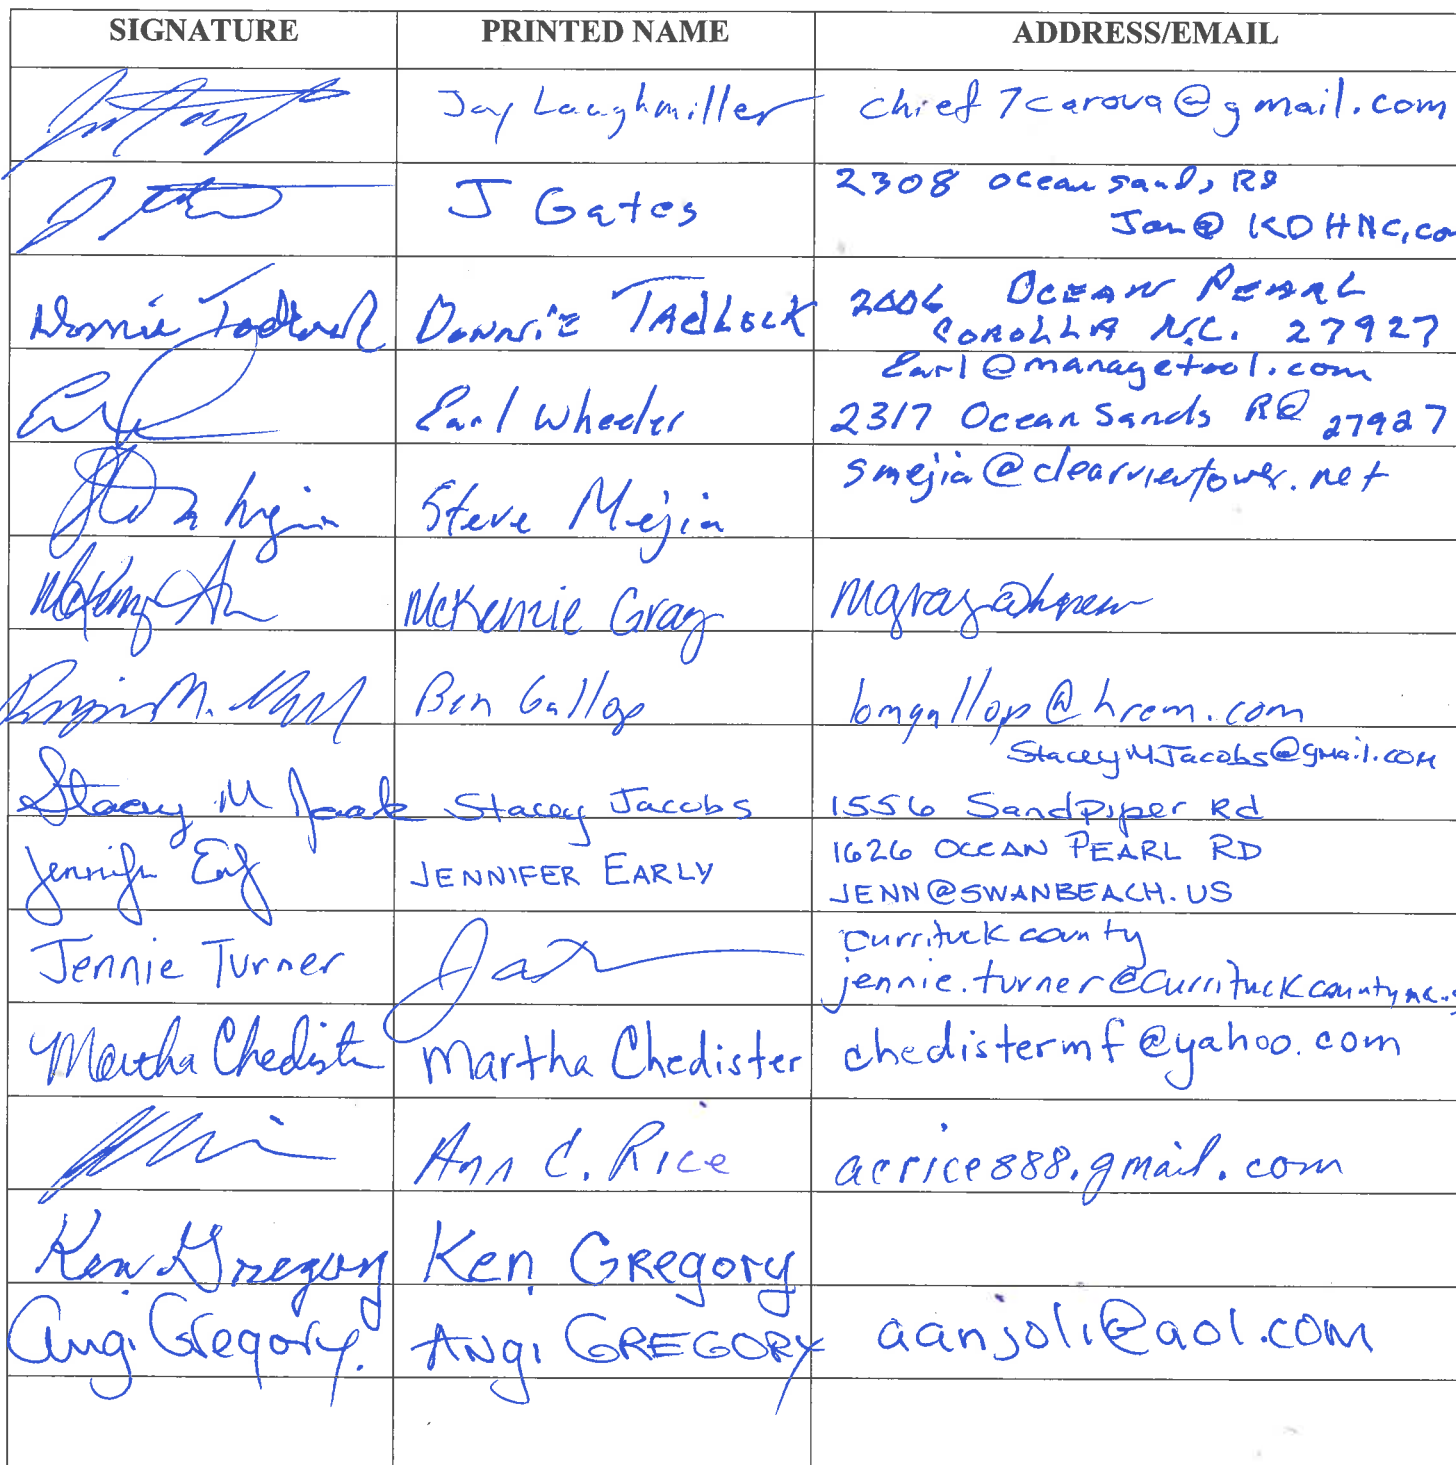 SIGNATURE PRINTED NAME ADDRESS/EMAIL
Jay Laughmiller chief7carova@gmail.com
J Gates 2308 Ocean sands Rd
Jon@KDHNC.co
Donnie Tadlock Donnie TAdLock 2006 OCEAN PEARL
COROLLA N.C. 27927
Earl@managetool.com
Earl Wheeler 2317 Ocean Sands Rd 27927
Steve Mejia smejia@clearviewtower.net
McKenzie Gray mgray@hrem
Ben Gallop bmgallop@hrem.com
StaceyMJacobs@gmail.com
Stacey M Jacobs Stacey Jacobs 1556 Sandpiper Rd
Jennifer Early JENNIFER EARLY 1626 OCEAN PEARL RD
JENN@SWANBEACH.US
Jennie Turner Currituck county
jennie.turner@Currituckcountync.g
Martha Chedister Martha Chedister chedistermf@yahoo.com
Ann C. Rice acrice888.gmail.com
Ken Gregory Ken GRegory
Angi Gregory. ANgi GREGORY aanjoli@aol.com